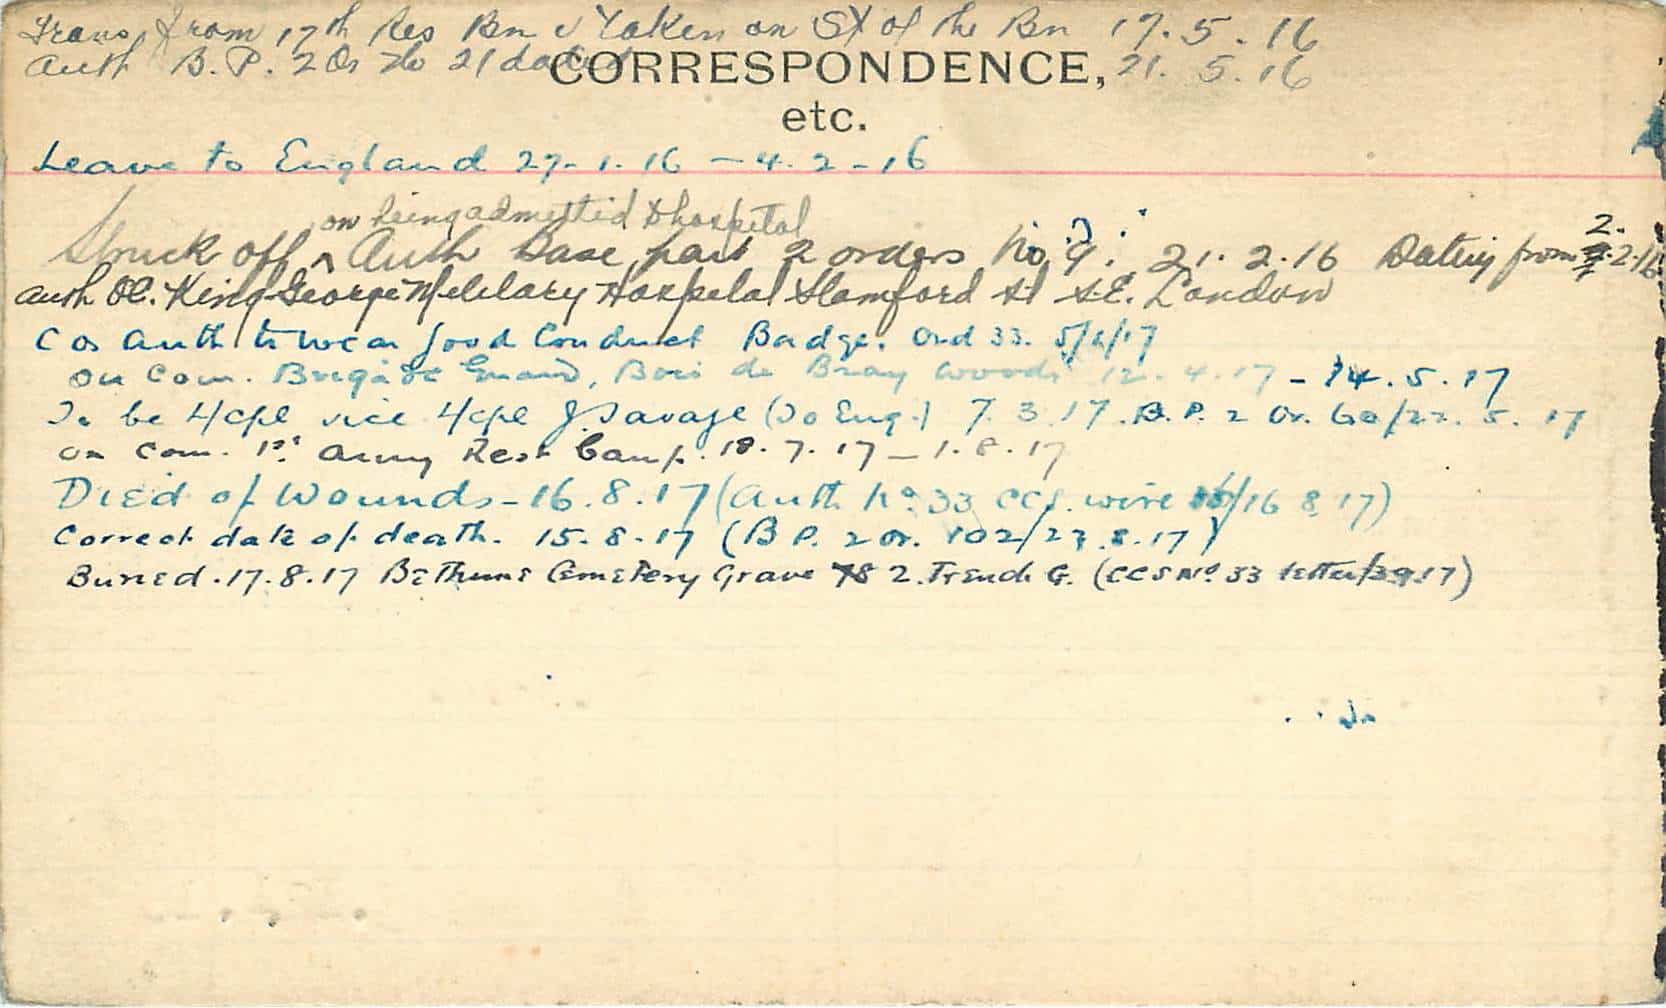 Trans from 17th Res Bn & Taken on St of the Bn 17.5.16
Auth B.P. 2 Or No 21 dated 21.5.16
CORRESPONDENCE,
etc.
Leave to England 27-1.16 - 4.2-16
on being admitted to hospital
Struck off ^ Auth Base part 2 orders No. 9. 21.2.16 Dating from 2.2.16
Auth OC. King George Military Hospital Stamford St S.E. London
C Os Auth to wear Good Conduct Badge. Ord 33. 5/2/17
On Com. Brigade Guard, Bois de Bray Woods 12.4.17 - 14.5.17
To be L/Cpl vice L/Cpl J. Savage (To Eng.) 7.3.17. B.P. 2 Or. 60/22.5.17
on Com. 1st Army Rest Camp. 18.7.17 - 1.8.17
Died of Wounds - 16.8.17 (Auth No 33 CCS. wire /16 8 17)
Correct date of death. 15.8.17 (B P. 2 Or. 102/27.8.17)
Buried. 17.8.17 Bethune Cemetery Grave 78 2. Trench G. (CCS No 33 letter/3917)